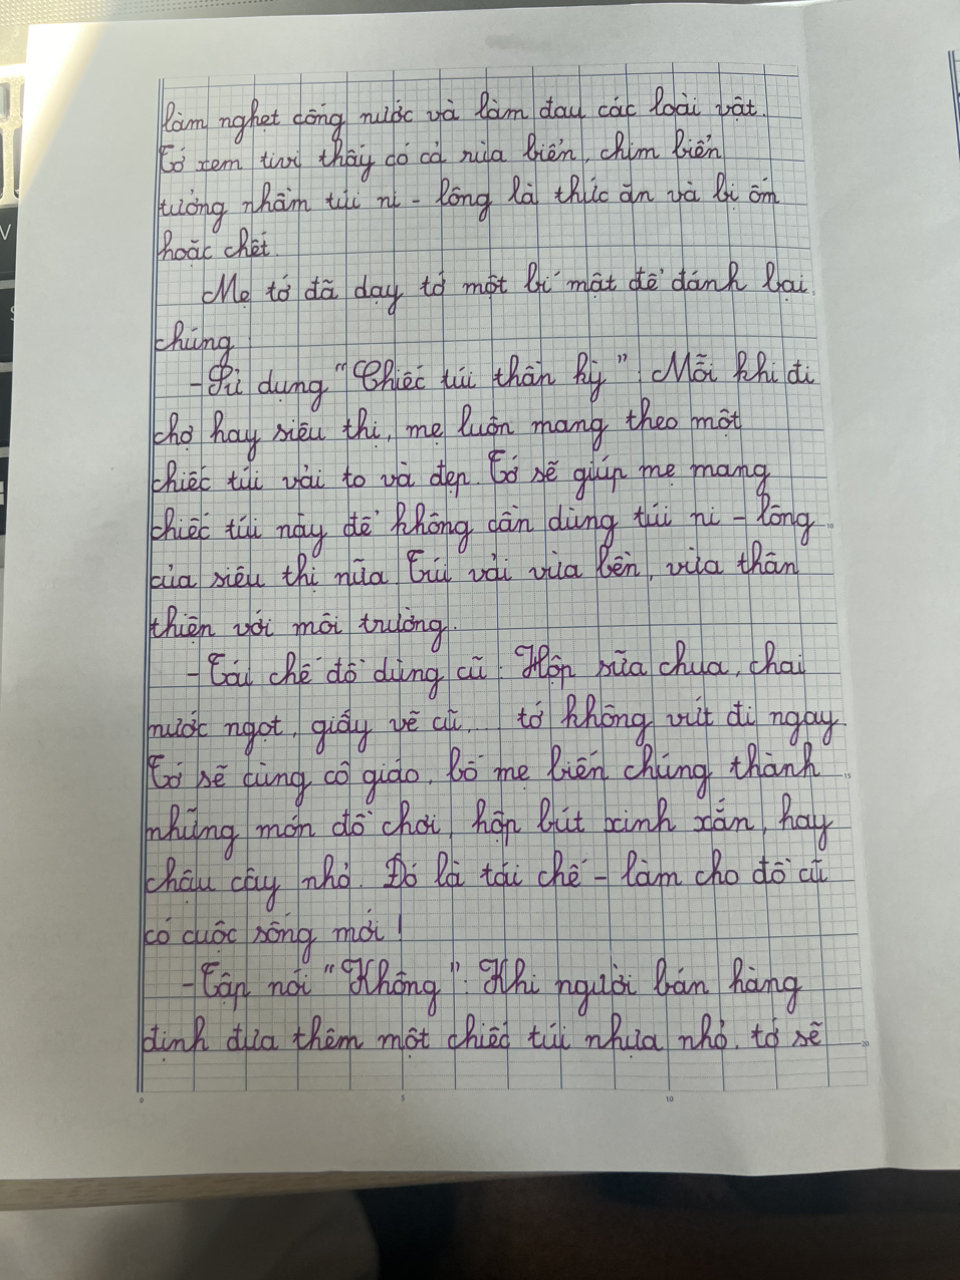 làm nghẹt cống nước và làm đau các loài vật.
Tớ xem tivi thấy có cả rùa biển, chim biển
tưởng nhầm túi ni - lông là thức ăn và bị ốm
hoặc chết.
Mẹ tớ đã dạy tớ một bí mật để đánh bại
chúng
- Sử dụng "Chiếc túi thần kỳ". Mỗi khi đi
chợ hay siêu thị, mẹ luôn mang theo một
chiếc túi vải to và đẹp. Tớ sẽ giúp mẹ mang
chiếc túi này để không cần dùng túi ni - lông
của siêu thị nữa. Túi vải vừa bền, vừa thân
thiện với môi trường.
- Tái chế đồ dùng cũ: Hộp sữa chua, chai
nước ngọt, giấy vẽ cũ... tớ không vứt đi ngay.
Tớ sẽ cùng cô giáo, bố mẹ biến chúng thành
những món đồ chơi, hộp bút xinh xắn, hay
chậu cây nhỏ. Đó là tái chế - làm cho đồ cũ
có cuộc sống mới!
- Tập nói "Không": Khi người bán hàng
định đưa thêm một chiếc túi nhựa nhỏ, tớ sẽ
0 5 10